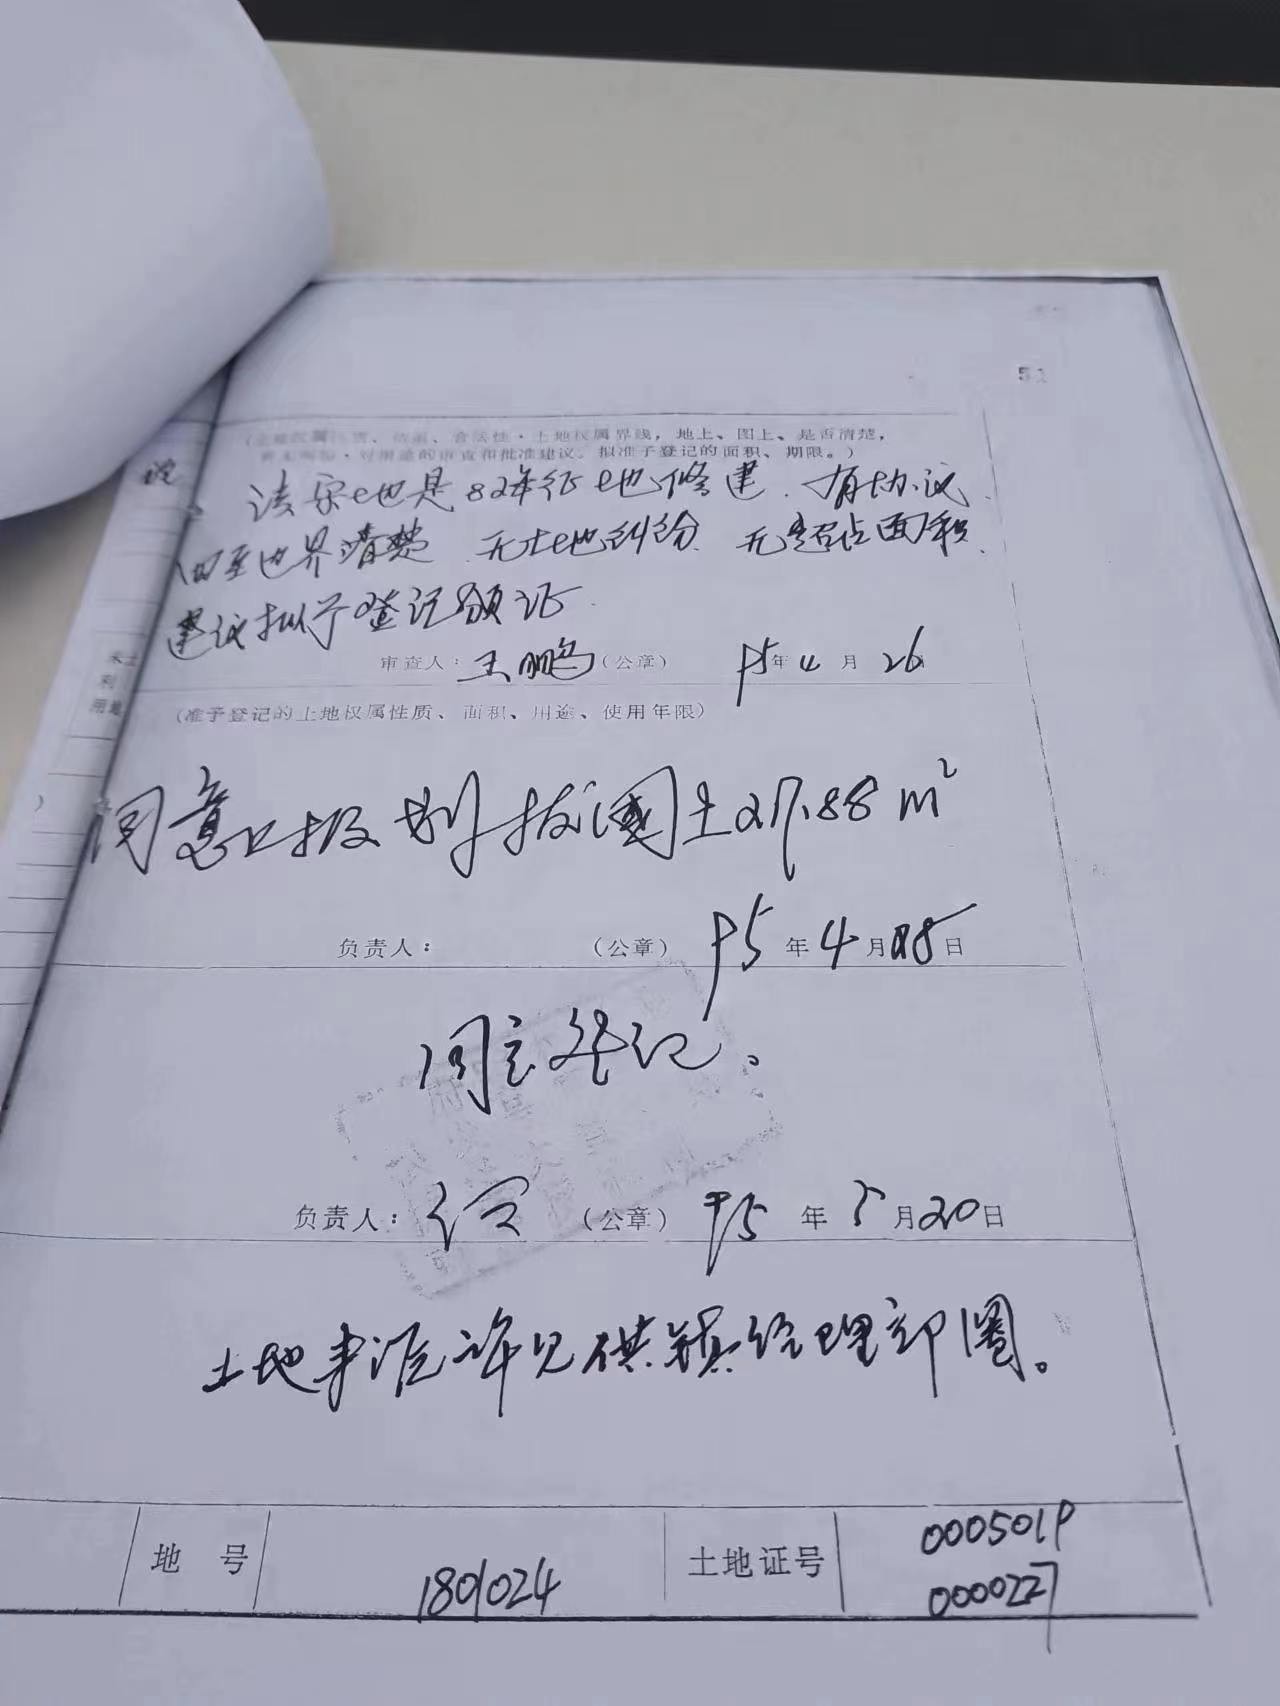 51
土地权属界线，地上、图上、是否清楚，
对用途的审查和批准建议。拟准予登记的面积、期限。）
该宗地是82年征地修建．有协议．
四至地界清楚．无土地纠纷．无超占面积．
建议拟予登记颁证．
审查人：王鹏（公章） 95年4月26
（准予登记的土地权属性质、面积、用途、使用年限）
同意上报划拨国土217.88m²
负责人： （公章） 95年4月28日
同意登记。
负责人： （公章） 95年5月20日
土地来源详见供镇经理部圈。
地号 1801024 土地证号 0005019
0000227
未
利
用